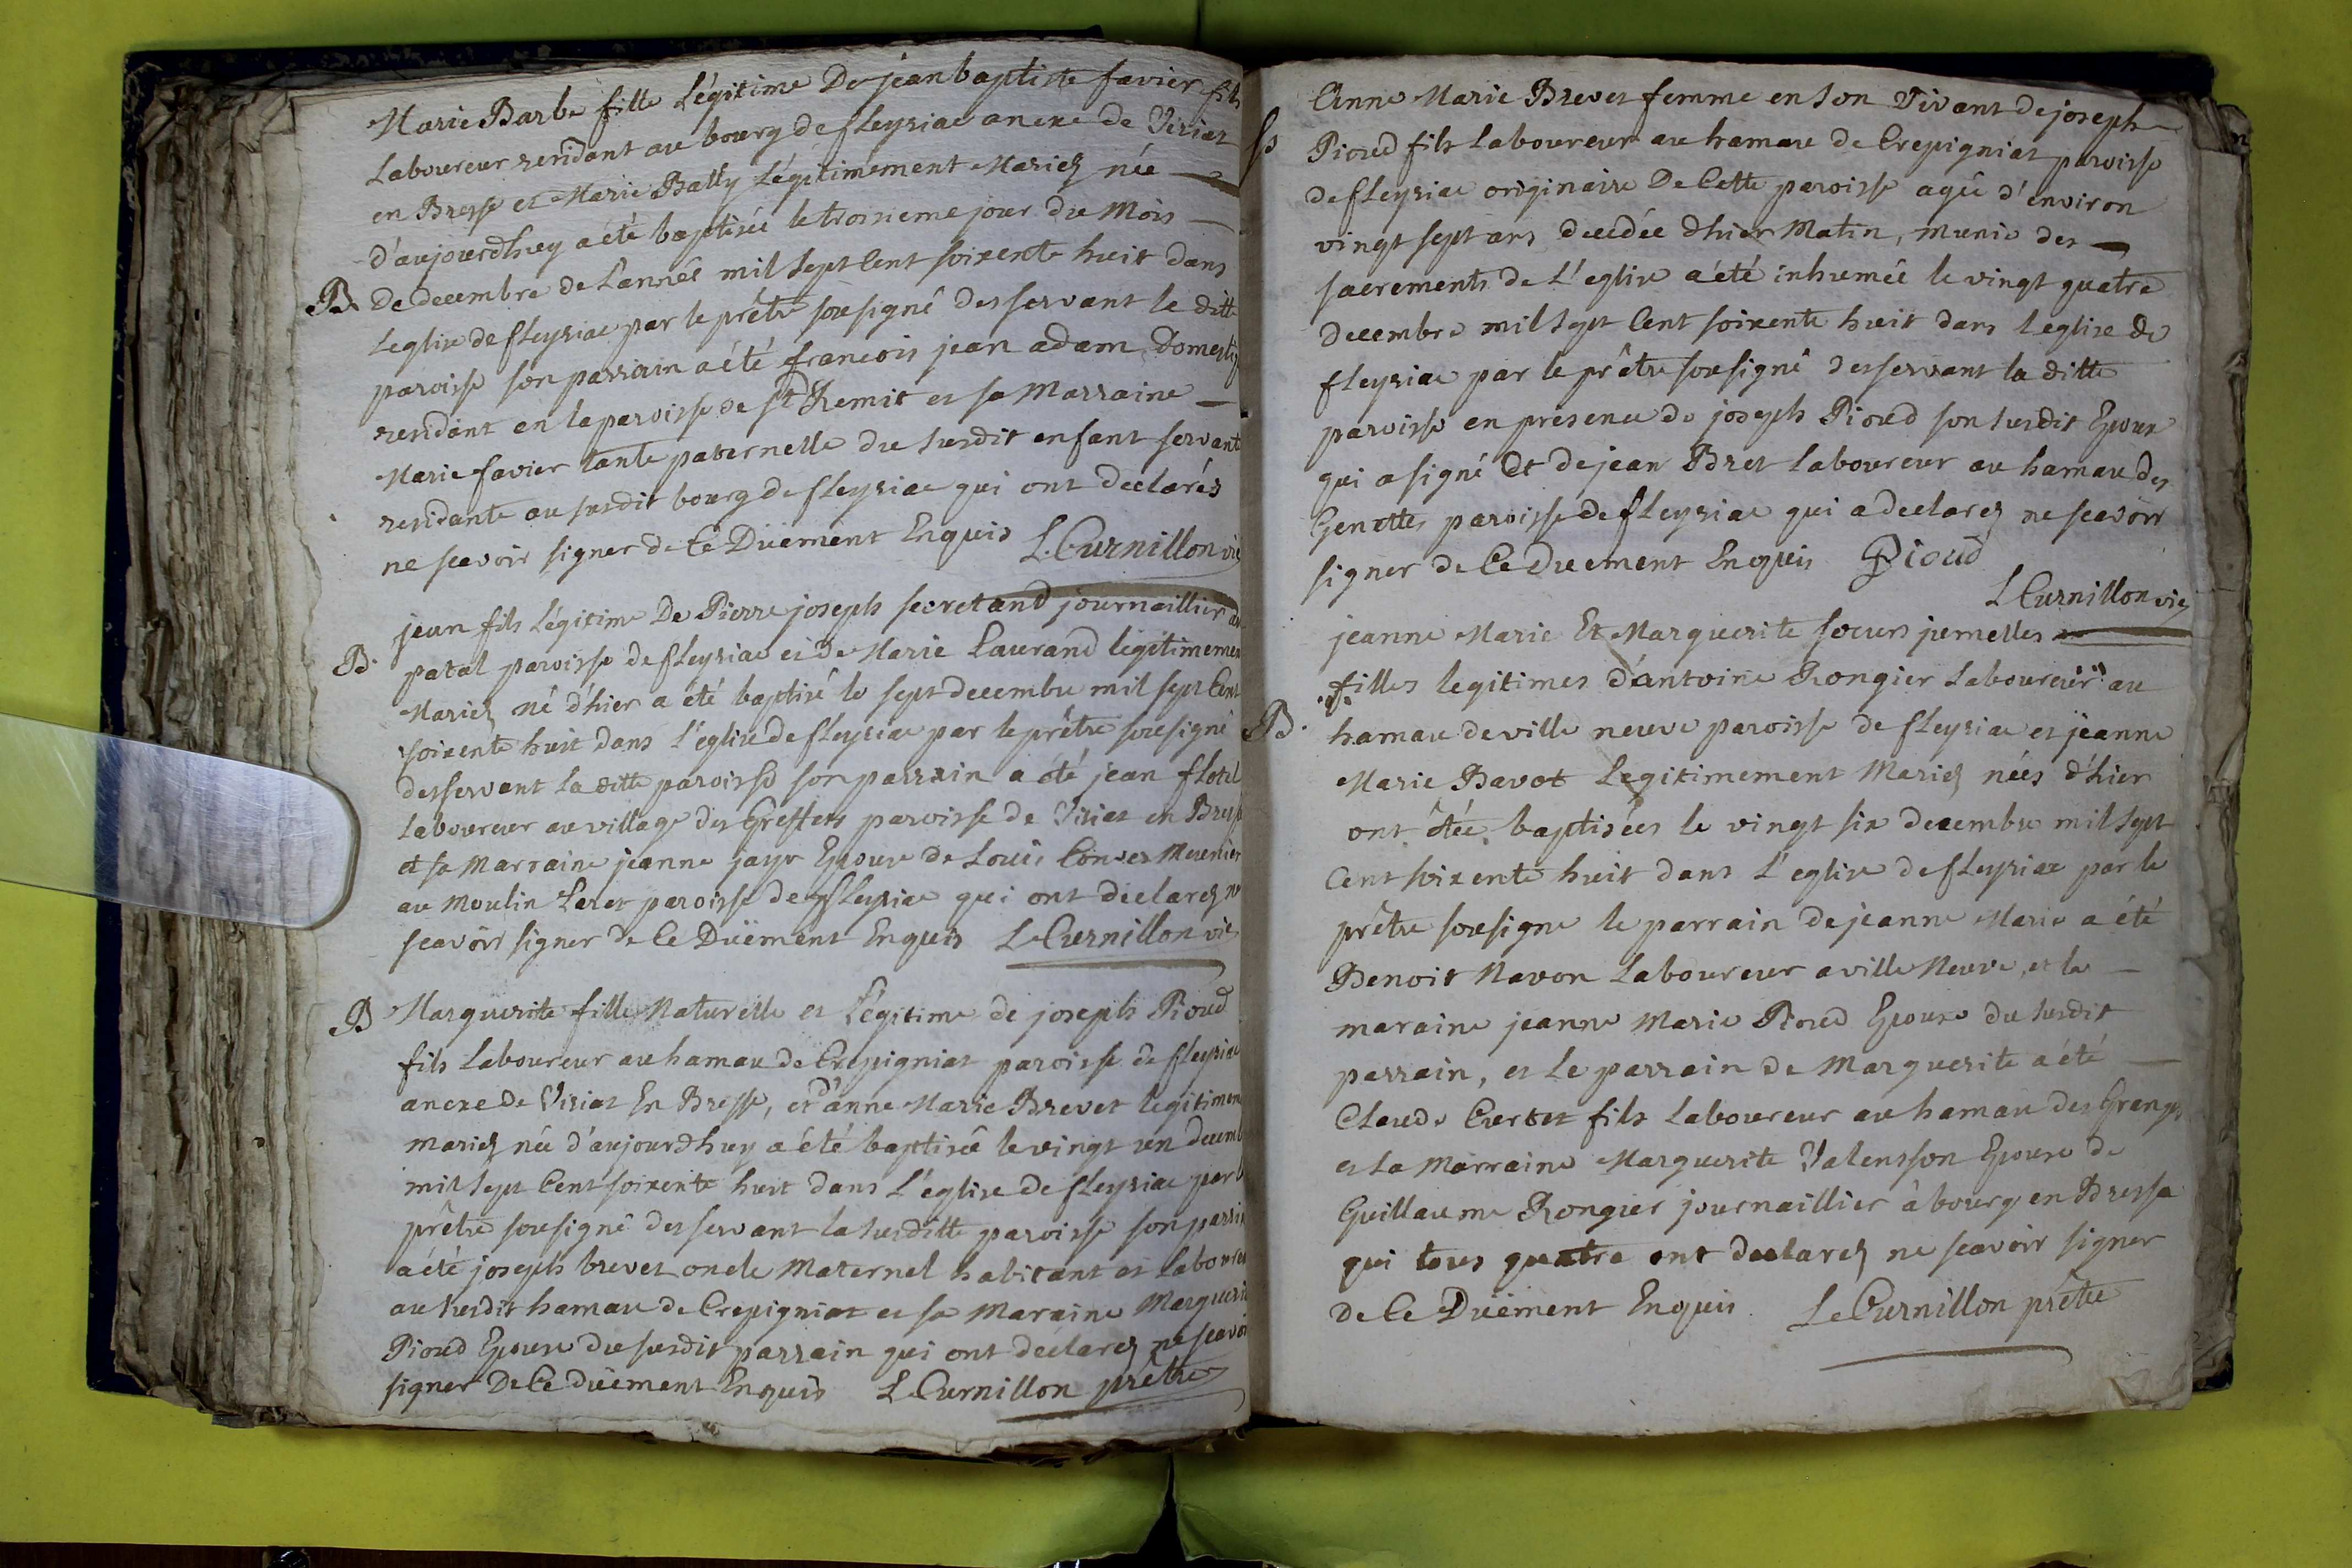 Marie Barbe fille Légitime De jean baptiste favier fils
Laboureur residant au bourg de fleyriac anexe de Viriat
en Bresse et Marie Bally Légitimement Mariez née
d'aujourdhuy a été baptisée le troisieme jour du Mois
B. De decembre de L'année mil sept Cent soixente huit dans
Leglise de fleyriac par le prêtre sousigné desservant le ditte
paroisse son parrain a été francois jean adam, Domestiq
residant en la paroisse de st Remit et sa Marraine
Marie favier tante paternelle du susdit enfant servante
residante au susdit bourg de fleyriac qui ont declarés
ne scavoir signer de Ce Duëment Enquis L. Curnillon vic
jean fils Légitime De Pierre joseph secretand journaillier
B. patal paroisse de fleyriac et de Marie Laurand legitimemen
Mariez né d'hier a été baptisé le sept decembre mil sept Cent
soixente huit dans L'eglise de fleyriac par le prêtre sousigné
desservant La ditte paroisse son parrain a été jean flotel
Laboureur au village des Greffets paroisse de Viriat en Bresse
et sa Marraine jeanne jayr Epouse de Louis Convert Meunier
au Moulin Laret paroisse de fleyriac qui ont declarez ne
scavoir signer de Ce Duëment Enquis L. Curnillon vic
B Marguerite fille Naturelle et Légitime de joseph Pioud
fils Laboureur au hamau de Crepigniat paroisse de fleyriac
anexe de Viriat En Bresse, et d'anne Marie Brevet legitimem
mariez née d'aujourdhuy a été baptisée le vingt un decemb
mil sept Cent soixente huit dans L'église de fleyriac par l
prêtre sousigné desservant la susditte paroisse son parrin
a été joseph brevet oncle Maternel habitant et Laboure
au susdit hamau de Crepigniat et sa Maraine Marguerit
Pioud Epouse du susdit parrain qui ont déclarez ne scavoi
signer De Ce duëment Enquis L. Curnillon prêtre
Anne Marie Brevet femme en son Vivant de joseph
S Pioud fils Laboureur au hamau de Crepigniat paroisse
de fleyriac originaire De Cette paroisse agée d'environ
vingt sept ans decedée dhier Matin, munie des
sacrements de L'eglise a été inhumée le vingt quatre
decembre mil sept Cent soixente huit dans l'eglise de
fleyriac par le prêtre sousigné desservant la ditte
paroisse en presence de joseph Pioud son susdit Epoux
qui a signé Et de jean Bret laboureur au hamau des
Genettes paroisse de fleyriac qui a declarez ne scavoir
signer de Ce Duement Enquis Pioud
L Curnillon vic
jeanne Marie Et Marguerite soeurs jumelles
filles legitimes d'antoine Rongier Laboureur au
B. hamau de ville neuve paroisse de fleyriac et jeanne
Marie Bavot Legitimement Mariez nées d'hier
ont étée baptisées le vingt six decembre mil sept
Cent soixente huit dans L'eglise de fleyriac par le
prêtre sousigne le parrain de jeanne Marie a été
Benoit Navon Laboureur a ville Neuve, et la
maraine jeanne Marie Pioud Epouse du susdit
parrain, et Le parrain de Marguerite a été
Claude Curtet fils Laboureur au hamau des Granges
et La Marraine Marguerite Valensson Epouse de
Guillaume Rongier journaillier à bourg en Bresse
qui tous quatre ont declarez ne scavoir signer
de Ce Duëment Enquis L. Curnillon prêtre